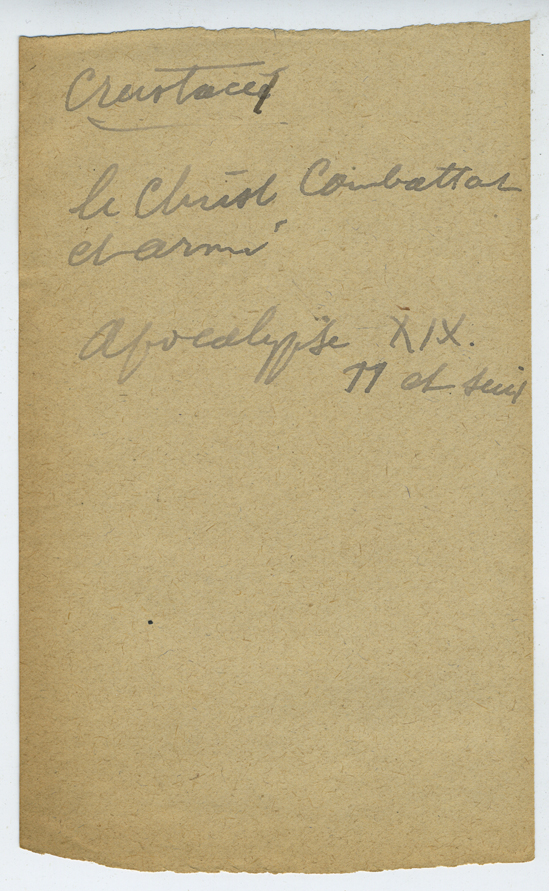 Crustacés
le Christ Combattant
et armé
Apocalypse XIX.
11 et suiv